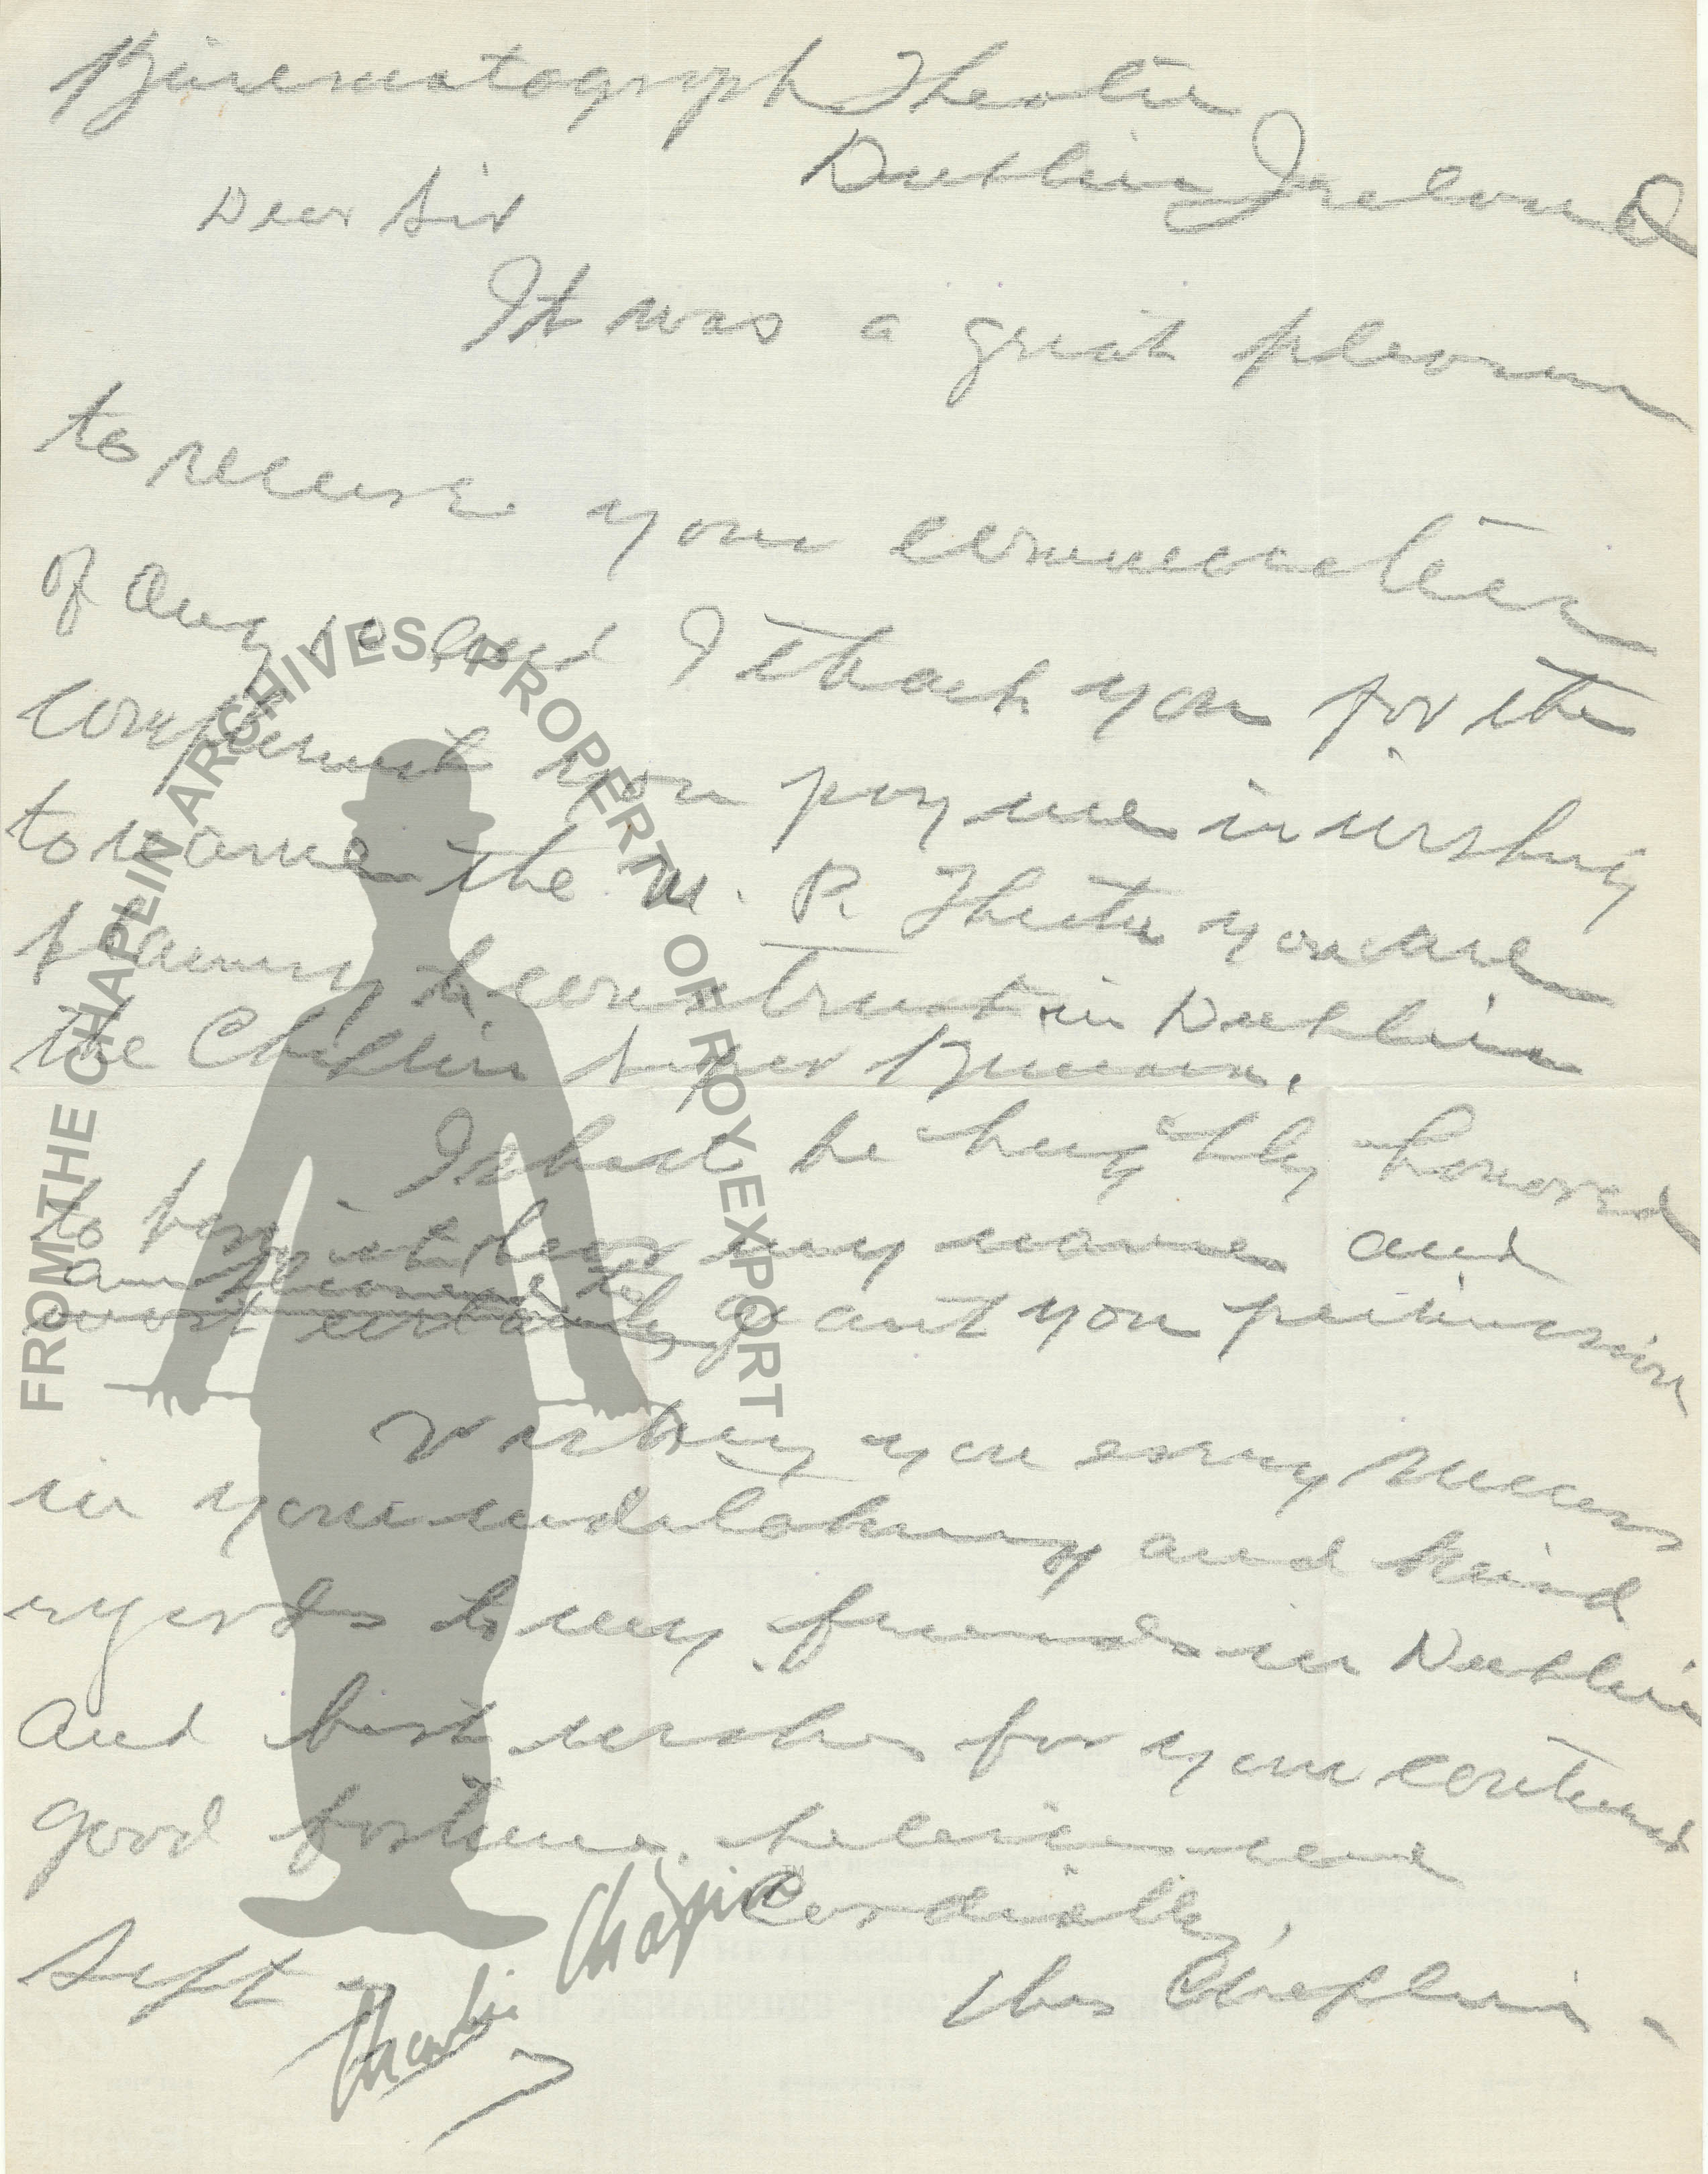 Kinematograph Theatre
Dublin Ireland
Dear Sir
It was a great pleasure
to receive your communication
of Aug and I thank you for the
compliment you pay me in wishing
to name the M. P. Theatre you are
planning to construct in Dublin
the Chaplin Super Kinema.
I shall be highly honored
to have it bear my name and
am pleased to
most certainly grant you permission
Wishing you every success
in your undertaking and kind
regards to my friends in Dublin
And best wishes for your continued
good fortune, believe me
Cordially,
Chas Chaplin -
Sept
Charlie Chaplin
FROM THE CHAPLIN ARCHIVES, PROPERTY OF ROY EXPORT